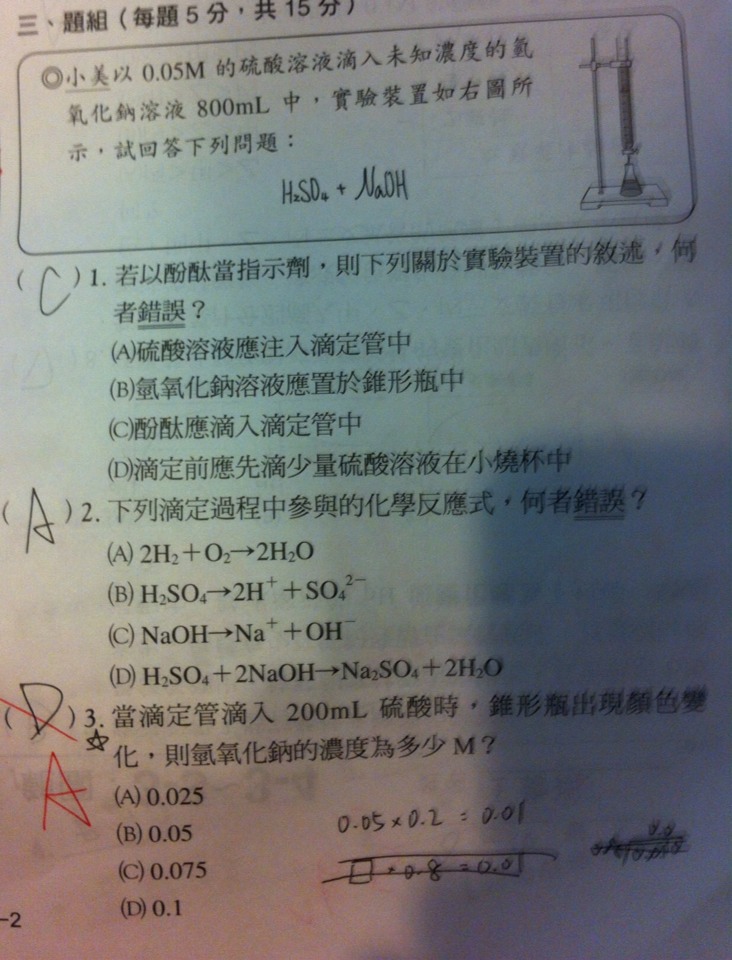 三、題組（每題5分，共15分）
◎小美以 0.05M 的硫酸溶液滴入未知濃度的氫
氧化鈉溶液 800mL 中，實驗裝置如右圖所
示，試回答下列問題：
H₂SO₄ + NaOH
( C ) 1. 若以酚酞當指示劑，則下列關於實驗裝置的敘述，何
者錯誤？
(A)硫酸溶液應注入滴定管中
(B)氫氧化鈉溶液應置於錐形瓶中
(C)酚酞應滴入滴定管中
(D)滴定前應先滴少量硫酸溶液在小燒杯中
( A ) 2. 下列滴定過程中參與的化學反應式，何者錯誤？
(A) 2H₂＋O₂→2H₂O
(B) H₂SO₄→2H⁺＋SO₄²⁻
(C) NaOH→Na⁺＋OH⁻
(D) H₂SO₄＋2NaOH→Na₂SO₄＋2H₂O
( D ) 3. 當滴定管滴入 200mL 硫酸時，錐形瓶出現顏色變
☆ 化，則氫氧化鈉的濃度為多少 M？
A
(A) 0.025
(B) 0.05
(C) 0.075
(D) 0.1
0.05×0.2 = 0.01
□×0.8 = 0.01
-2